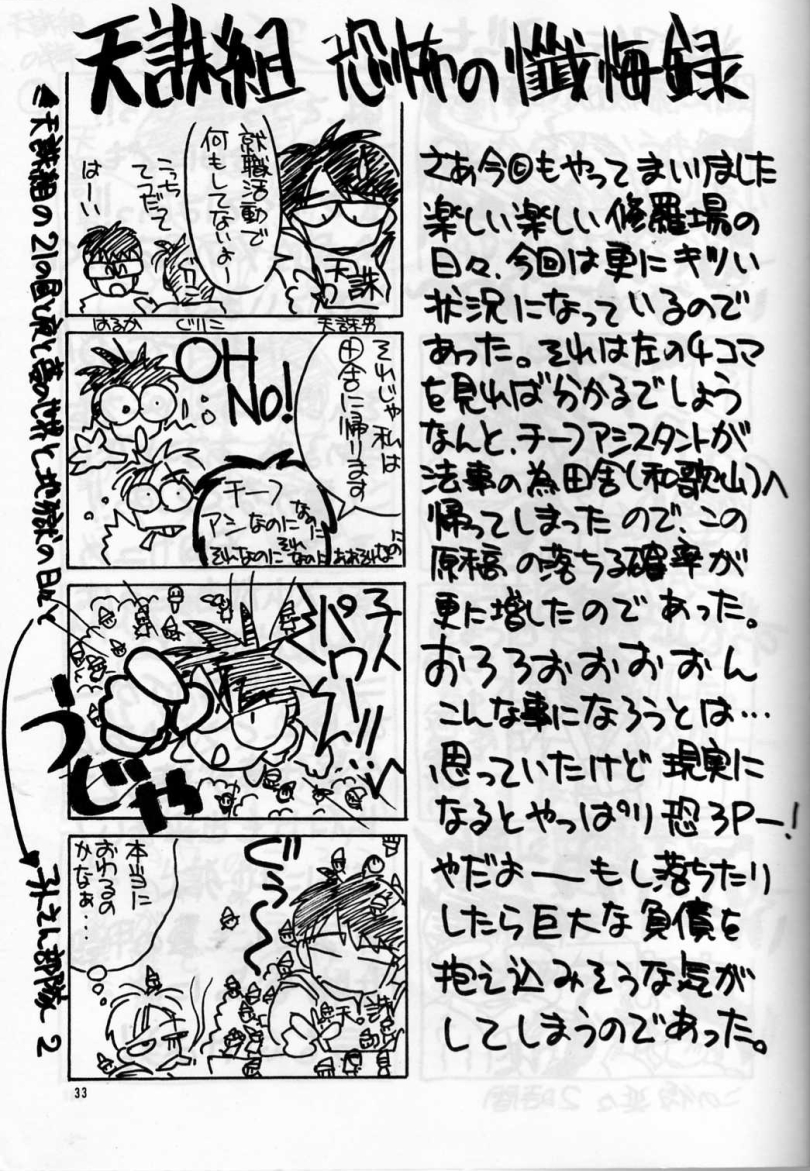 天誅組 恐怖の懺悔録
さあ今回もやってまいりました
楽しい楽しい修羅場の
日々、今回は更にキツい
状況になっているので
あった。それは左の4コマ
を見れば分かるでしょう
なんと、チーフアシスタントが
法事の為田舎(和歌山)へ
帰ってしまったので、この
原稿の落ちる確率が
更に増したのであった。
おろろおおおおん
こんな事になろうとは…
思っていたけど現実に
なるとやっぱり恐3Pー!
やだよーーもし落ちたり
したら巨大な負債を
抱え込みそうな気が
してしまうのであった。
就職活動で
何もしてないよー
こっち
てつだって
はーい
天誅
はるか
ぐりこ
天誅男
それじゃ私は
田舎に帰ります
OH
NO!
チーフ
アシなのに
なのに
それなのに
そんなのに
おおそれなのに
パ
ワ
ー!!
うじゃ
ぐぅ〜
本当に
おわるの
かなぁ…
天誅
天誅組の21の昼と夜と
地獄の日々
部隊 2
33